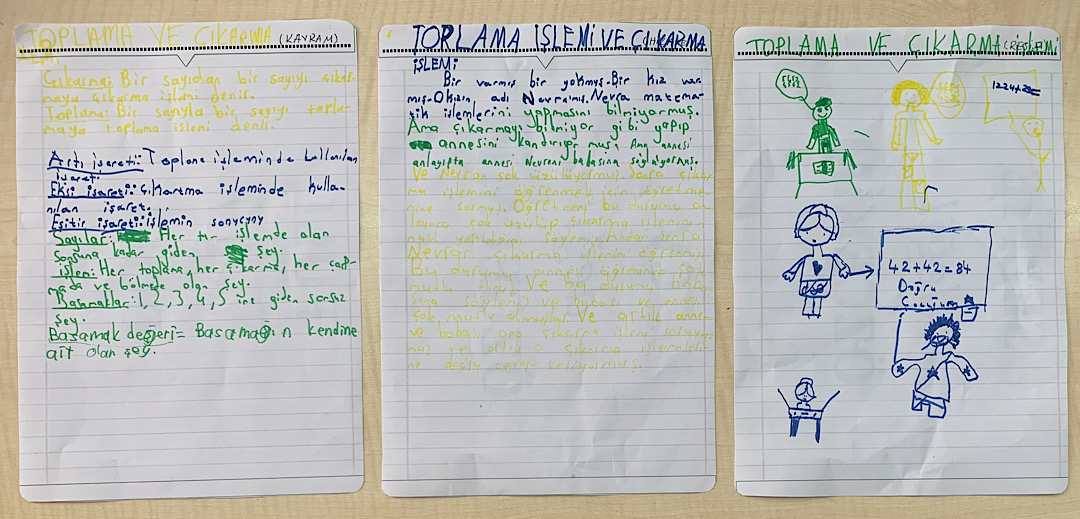 TOPLAMA VE ÇIKARMA (KAVRAM)
Çıkarma: Bir sayıdan bir sayıyı çıkar-
maya çıkarma işlemi denir.
Toplama: Bir sayıyla bir sayıyı topla-
maya toplama işlemi denir.
Artı işareti: Toplama işleminde kullanılan
işaret.
Eksi işareti: Çıkartma işleminde kulla-
nılan işaret.
Eşitir işareti: İşlemin sonucunu
Sayılar: Her tır işlemde olan
sonsuna kadar giden şey.
işlem: Her toplama, her çıkarma, her çarp-
mada ve bölmede olan şey.
Basamaklar: 1, 2, 3, 4, 5 ine giden sonsuz
şey.
Basamak değeri = Basamağın kendine
ait olan şey.
TOPLAMA İŞLEMİ VE ÇIKARMA
İŞLEMİ
Bir varmış bir yokmuş. Bir kız var
mış. O kızın adı Nevraimış. Nevra matema-
tik işlemlerini yapmasını bilmiyormuş.
Ama çıkarmayı bilmiyor gibi yapıp
annesini kandırıyor muş. Ama annesi
anlayıpta annesi Nevrani babasına söylüyormuş.
Ve Nevran çok üzülüyormuş. Sonra çıkar
ma işlemini öğrenmek için öğretme
nine sormuş. Öğretmeni bu durumu an
layıp çok üzülüp çıkarma işleminin
nasıl yapıldığını söylemiş. Ondan sonra
Nevra çıkarma işlemini öğrenmiş
Bu durumu annesi öğrenince çok
mutlu olmuş. Ve bu durumu baba
sına söylemiş ve babası ve annesi
çok mutlu olmuşlar. Ve artık anne
ve babası ona çıkarma işlemi soruyor
muş ve artık o çıkarma işlemleri
ne doğru cevap veriyormuş.
TOPLAMA VE ÇIKARMA İŞLEMİ
1224+20=
42+42=84
Doğru
Çocuğum